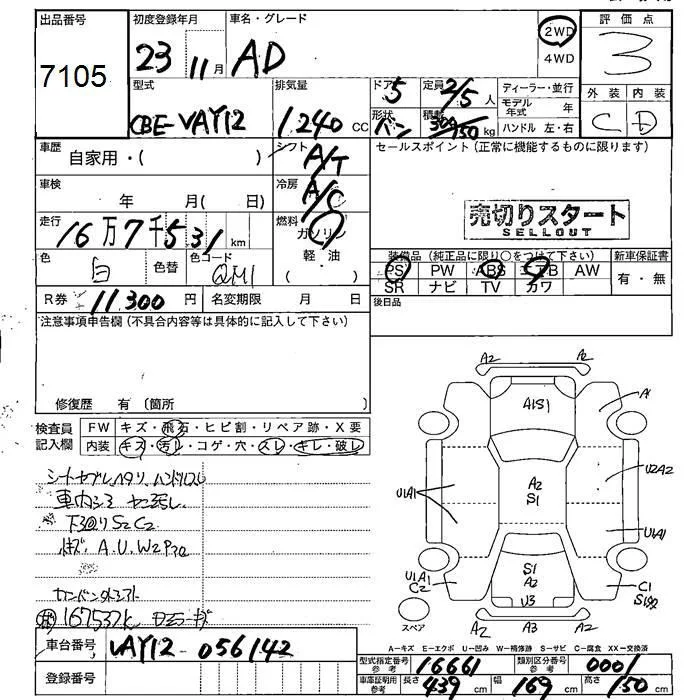 出品番号
7105
初度登録年月
23 11月
車名・グレード
AD
2WD
4WD
評価点
3
外装 内装
C D
型式
CBE-VAY12
排気量
1.240 cc
ドア 5
形状 バン
定員 2/5 人
積載 kg
ディーラー・並行
モデル年式 年
ハンドル 左・右
車歴
自家用・( )
シフト
A/T
車検
年 月( 日)
冷房
A/C
走行
16万7千531 km
燃料
ガソリン
軽・油
( )
色
白
色替
色コード
QM1
R券 11.300 円
名変期限 月 日
セールスポイント(正常に機能するものに限ります)
売切りスタート
SELLOUT
装備品(純正品に限り○をつけて下さい)
PS PW ABS AB AW
SR ナビ TV カワ
新車保証書
有・無
後日品
注意事項申告欄(不具合内容等は具体的に記入して下さい)
修復歴 有(箇所 )
検査員記入欄
FW キズ・飛石・ヒビ割・リペア跡・X要
内装 キズ・汚レ・コゲ・穴・スレ・キレ・破レ
シートセブレ,ハタリ,ハンドルスレ
車内シミ ヤニ汚レ
下回りS2C2
キズ、A.U.W2P
カンバン
167537k
A2 A2
A1S1
A1
A2
S1
U2A2
U1A1
U1A1
U1A1
C2
S1
A2
U3
C1
スペア
A2 A3 A2
A-キズ E-エクボ U-凹み W-補修跡 S-サビ C-腐食 XX-交換済
車台番号 VAY12-056142
登録番号
型式指定番号 参考 16661
類別区分番号 参考 0001
車庫証明用 参考 長さ 439 cm 幅 169 cm 高さ 150 cm